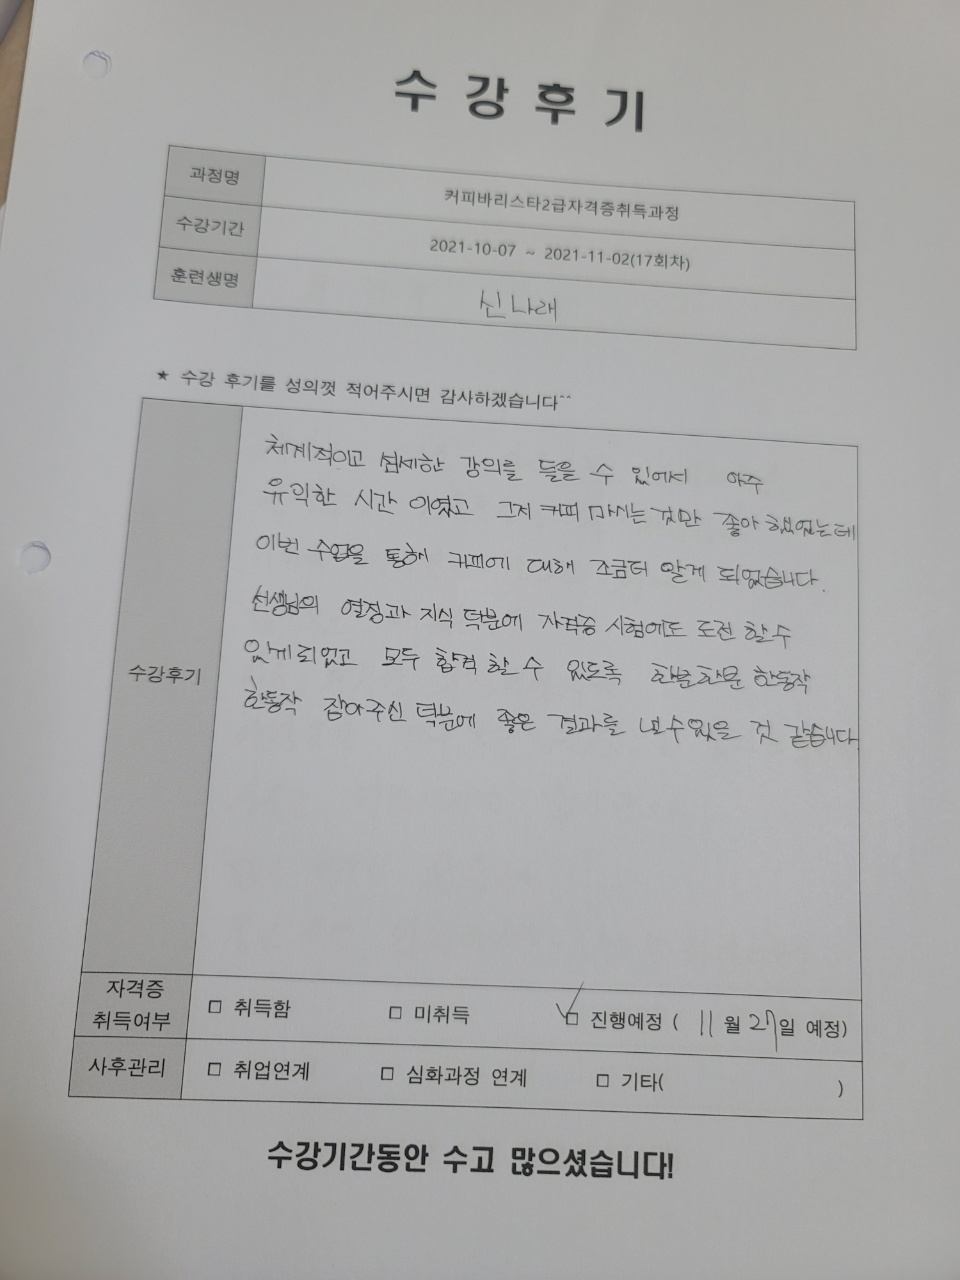 수 강 후 기
과정명 커피바리스타2급자격증취득과정
수강기간 2021-10-07 ~ 2021-11-02(17회차)
훈련생명 신나래
★ 수강 후기를 성의껏 적어주시면 감사하겠습니다^^
체계적이고 섬세한 강의를 들을 수 있에서 아주
유익한 시간 이였고 그저 커피 마시는 것만 좋아 했었는데
이번 수업을 통해 커피에 대해 조금더 알게 되었습니다.
선생님의 열정과 지식 덕분에 자격증 시험에도 도전 할 수
있게 되었고 모두 합격 할 수 있도록 한분한분 한동작
한동작 잡아주신 덕분에 좋은 결과를 낼 수 있을 것 같습니다
수강후기
자격증
취득여부
□ 취득함 □ 미취득 □ 진행예정 ( 11 월 27일 예정)
사후관리 □ 취업연계 □ 심화과정 연계 □ 기타( )
수강기간동안 수고 많으셨습니다!